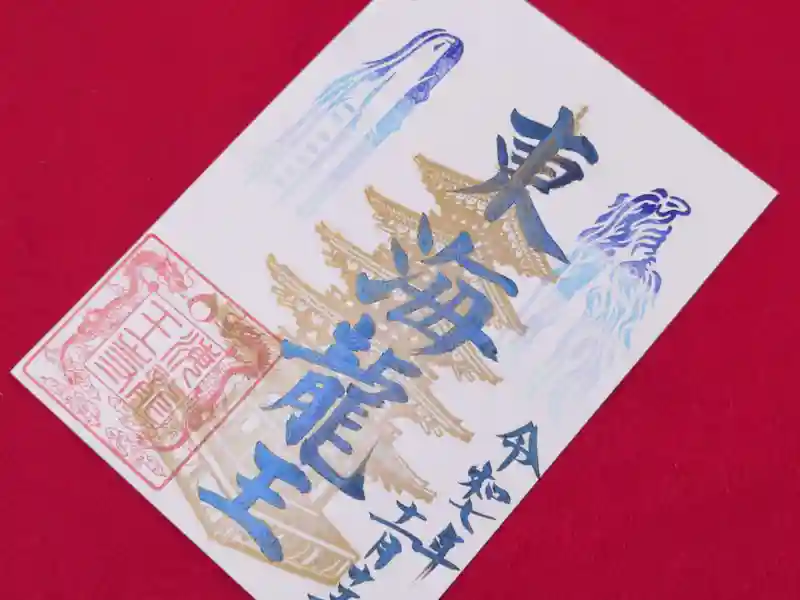 東海龍王
令和七年
十一月